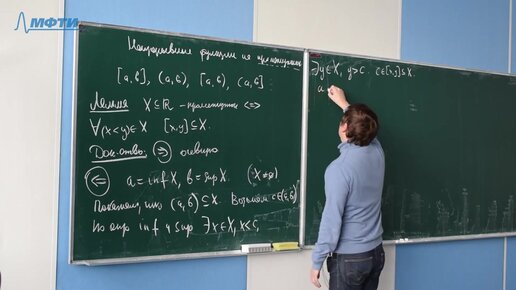 МФТИ
Непрерывные функции на промежутках
[a,b], (a,b), [a,b), (a,b]
Лемма X⊆ℝ – промежуток <=>
∀(x<y)∈X [x,y]⊆X.
Док-тво: ⇒ очевидно
⇐ a=inf X, b=sup X (X≠∅)
Покажем, что (a,b)⊆X. Возьмём c∈(a,b)
Из опр inf и sup ∃x∈X, x<c,
∃y∈X, y>c. c∈[x,y]⊆X.
a